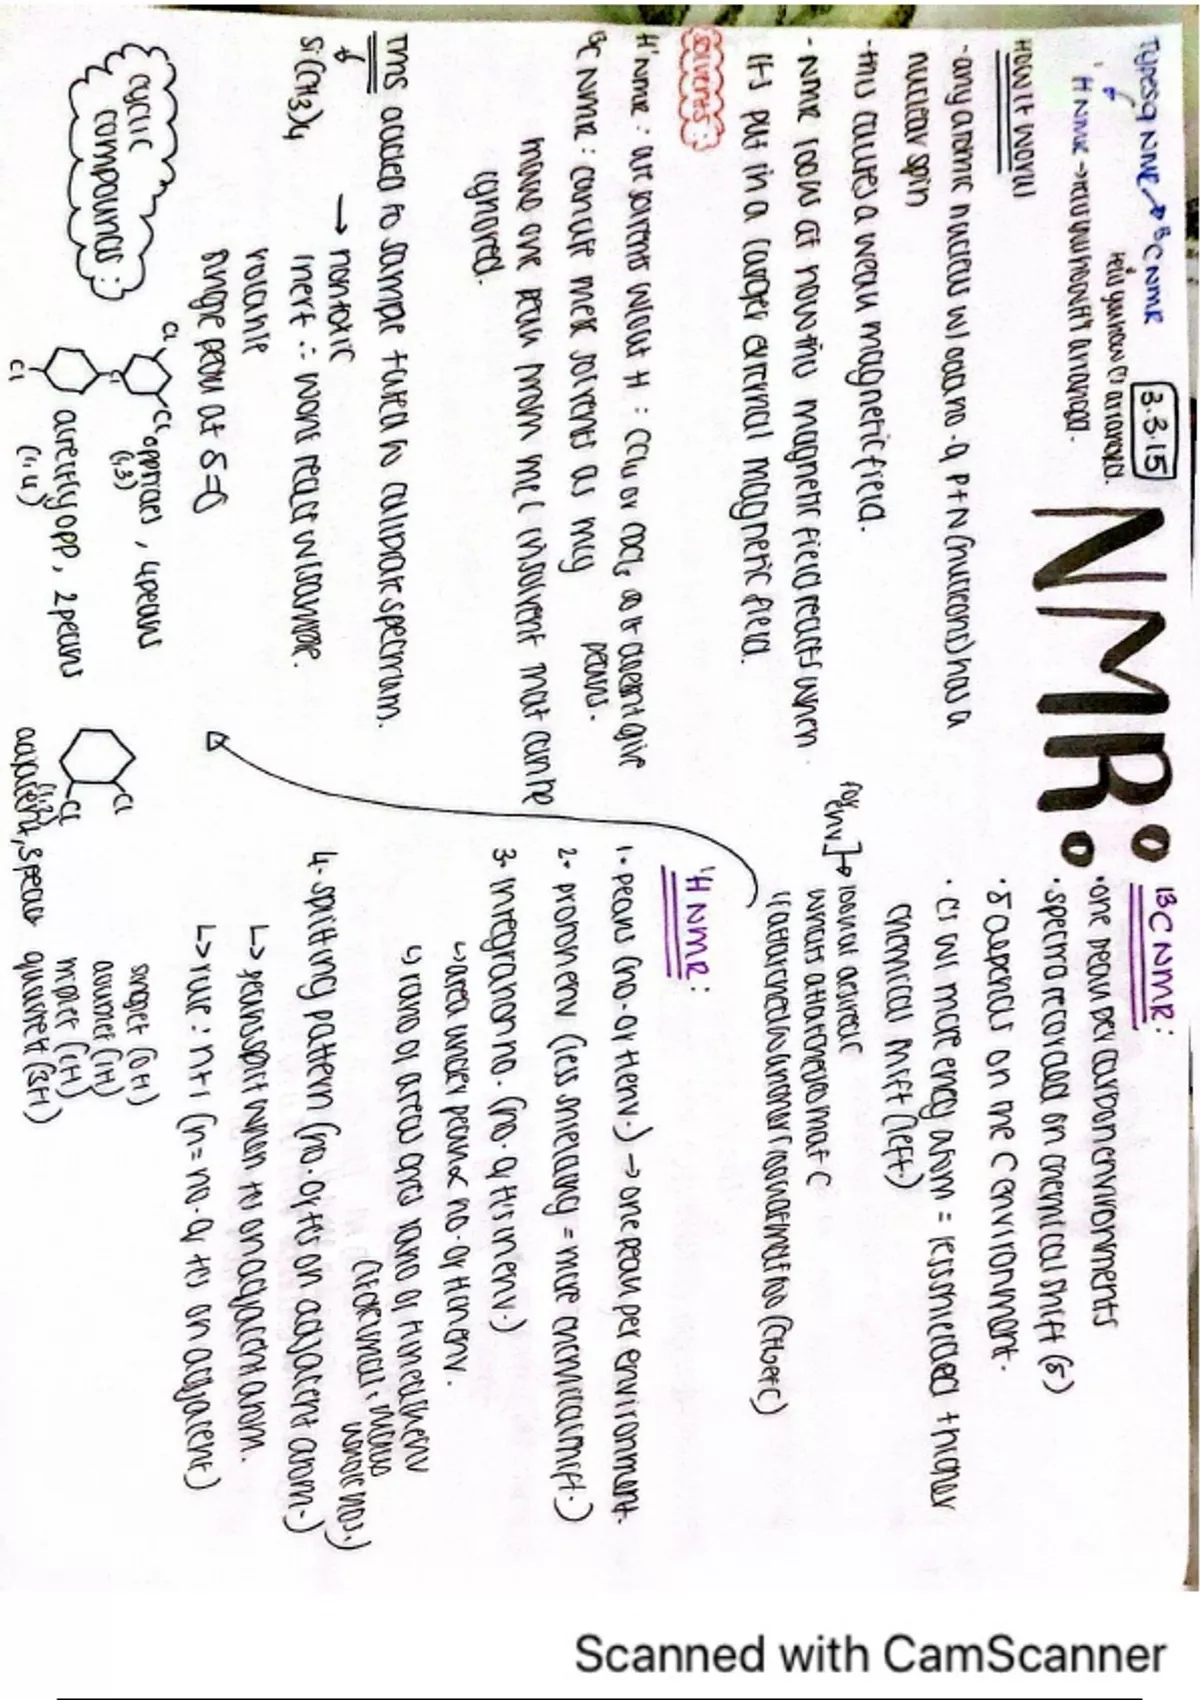 3.3.15
NMR:
Types of NMR → ¹³C NMR
tells you how C's arranged.
¹H NMR → tells you how H's arranged.
How it works
- any atomic nucleus w/ odd no. of p+N (nucleons) has a
nuclear spin
- this causes a weak magnetic field.
- NMR looks at how this magnetic field reacts when
its put in a larger external magnetic field.
solvents:
H'NMR: use solvents w/out H: CCl₄ or CDCl₃ so it doesn't give
peaks.
¹³C NMR: can use these solvents as they
have one peak from the C in solvent that can be
ignored.
TMS added to sample tube to calibrate spectrum.
Si(CH3)4 → nontoxic
inert ∴ wont react w/ sample.
volatile
single peak at δ=0
cyclic
compounds:
Cl
Cl
opposites, 4 peaks
(1,3)
Cl
Cl
directly opp, 2 peaks
(1,4)
Cl
Cl
adjacent, 3 peaks
(1,2)
¹³C NMR:
• one peak per carbon environments
• spectra recorded on chemical shift (δ)
• δ depends on the C environment.
• C's w/ more energy atom = less shielded + higher
chemical shift (left)
for env.] → look at desired C
whats attatched to that C
if attatched w/ another C look at that too (CH₃ etc)
¹H NMR:
1. peaks (no. of H env.) → one peak per environment.
2. proton env (less shielding = more chemical shift.)
3. Integration no. (no. of H's in env.)
↳ area under peak ∝ no. of H in env.
↳ ratio of areas gives ratio of H in each env
(if decimals, make
whole nos.)
4. splitting pattern (no. of H's on adjacent atom.)
↳ peaks split when H's on adjacent atom.
↳ rule: n+1 (n = no. of H's on adjacent)
singlet (0H)
doublet (1H)
triplet (2H)
quartet (3H)
Scanned with CamScanner